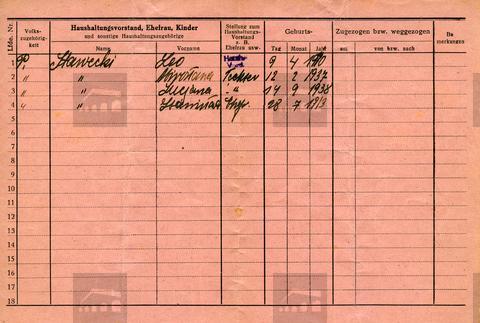 Lfde. Nr. Volks-zugehörig-keit Haushaltungsvorstand, Ehefrau, Kinder und sonstige Haushaltungsangehörige Stellung zum Haushaltungs-Vorstand z. B. Ehefrau usw. Geburts- Zugezogen bzw. weggezogen Be merkungen
Name Vorname Tag Monat Jahr am von bzw. nach
1 P. Stawecki Leo 9 4 1910
2 " " Tochter 12 2 1937
3 " " Lucjana " 14 9 1938
4 " Stanisław 28 7
5
6
7
8
9
10
11
12
13
14
15
16
17
18